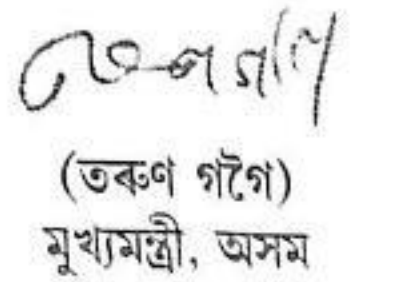 তৰুণ গগৈ
(তৰুণ গগৈ)
মুখ্যমন্ত্ৰী, অসম